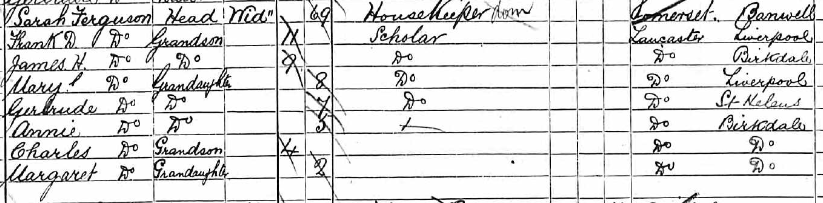 Sarah Ferguson Head Wid 69 Housekeeper Dom Somerset. Banwell
Frank D. Do Grandson 11 Scholar Lancaster Liverpool
James H. Do Do 9 Do Do Birkdale
Mary Do Grandaughter 8 Do Do Liverpool
Gertrude Do Do 7 Do Do St Helens
Annie Do Do 5 + Do Birkdale
Charles Do Grandson 4 Do Do
Margaret Do Grandaughter 2 Do Do